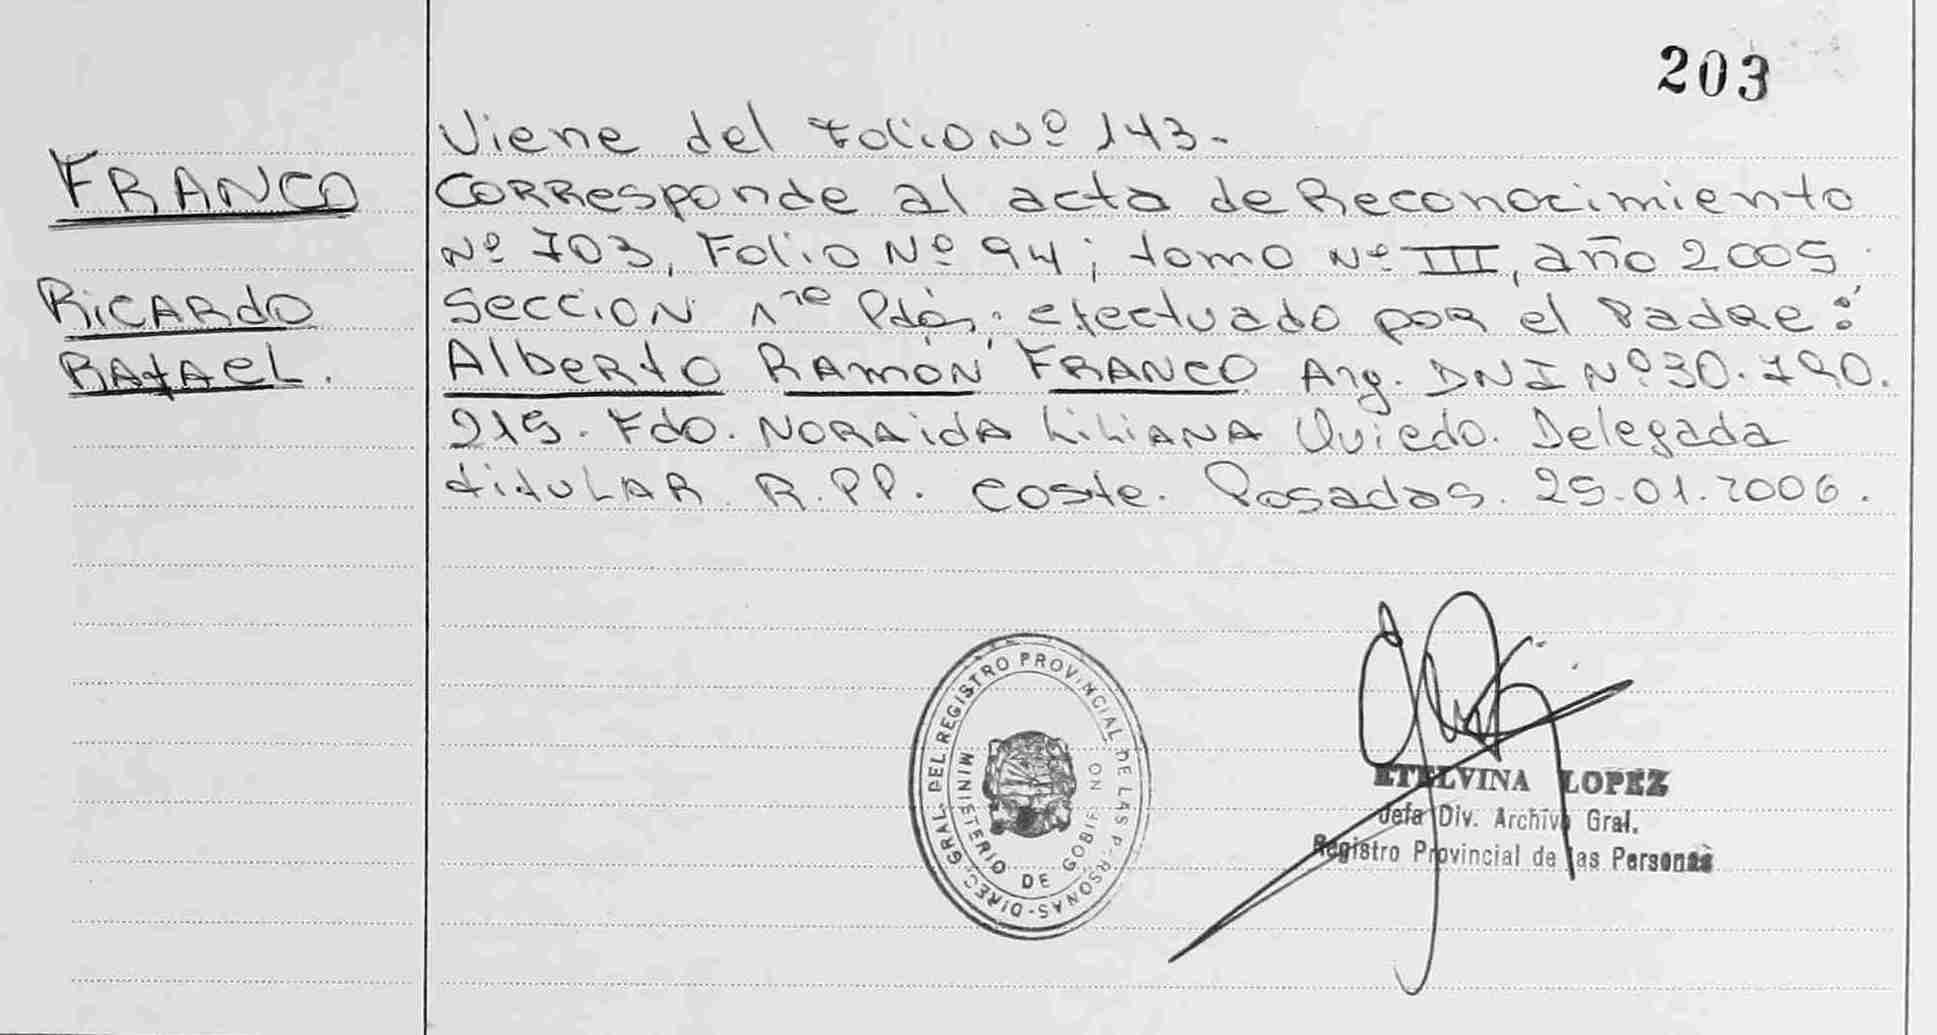 203
Viene del Folio Nº 143-
FRANCO
Corresponde al acta de Reconocimiento
Nº 703, Folio Nº 94; tomo Nº III, año 2005.
Ricardo
Seccion 1ra Pdas; efectuado por el Padre:
Rafael.
Alberto Ramón FRANCO Arg. DNI Nº 30.790.
215. Fdo. NORAIDA LILIANA Oviedo. Delegada
titular R.P.P. Coste. Posadas. 25.01.2006.
DIREC. GRAL. DEL REGISTRO PROVINCIAL DE LAS P RSONAS-
MINISTERIO DE GOBIE NO
ETELVINA LOPEZ
Jefa Div. Archivo Gral.
Registro Provincial de las Personas